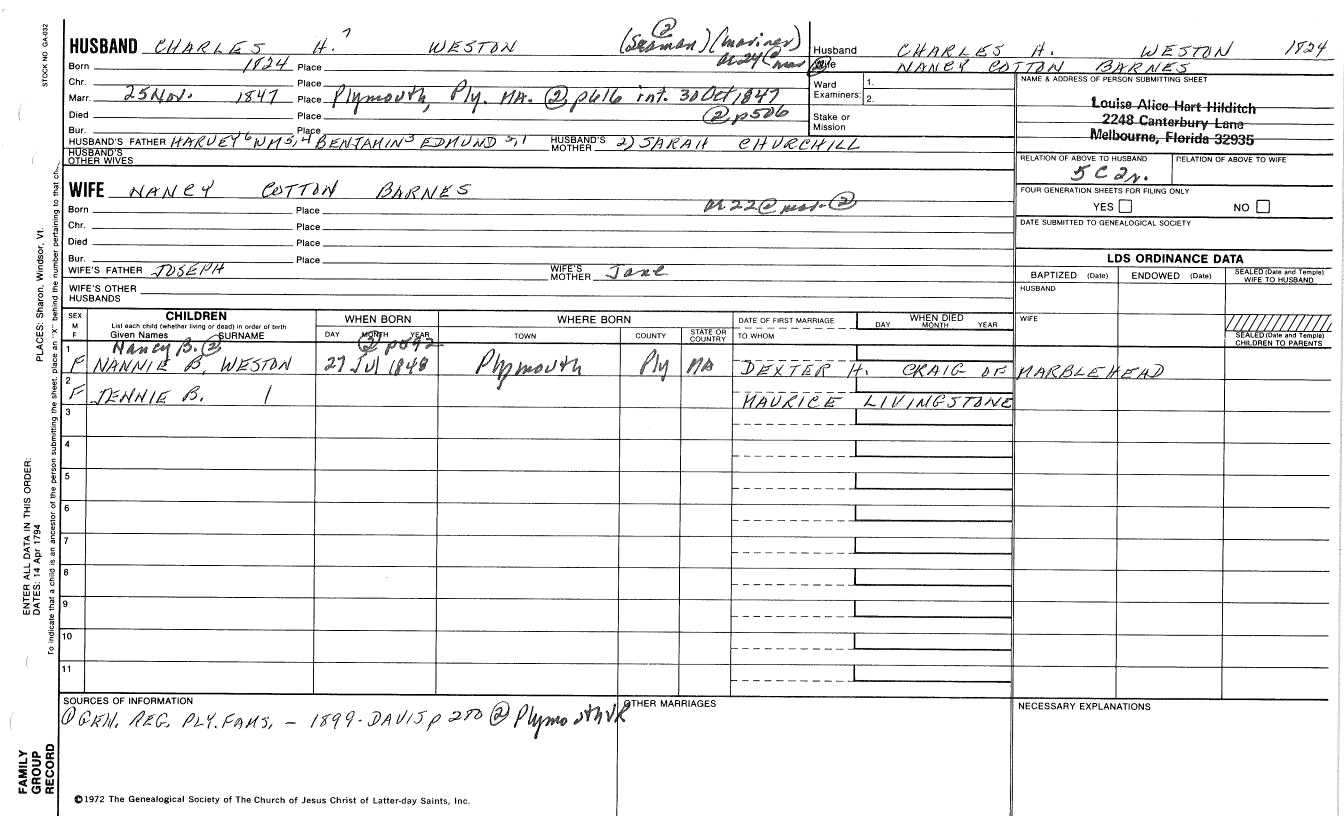 STOCK NO GA-032
HUSBAND CHARLES H.7 WESTON (2) (Seaman) (mariner)
ae 24 @ mar (2)
Born 1824 Place
Chr. Place
Marr. 25 Nov. 1847 Place Plymouth, Ply. MA. (2) p616 int. 30 Oct 1847
Died Place (2) p506
Bur. Place
HUSBAND'S FATHER HARVEY6 WM5,4 BENJAMIN3 EDMUND2,1 HUSBAND'S MOTHER 2) SARAH CHURCHILL
HUSBAND'S OTHER WIVES
WIFE NANCY COTTON BARNES
ae 22 @ mar. (2)
Born Place
Chr. Place
Died Place
Bur. Place
WIFE'S FATHER JOSEPH WIFE'S MOTHER Jane
WIFE'S OTHER HUSBANDS
Husband CHARLES H. WESTON 1824
Wife NANCY COTTON BARNES
Ward Examiners: 1. 2.
Stake or Mission
NAME & ADDRESS OF PERSON SUBMITTING SHEET
Louise Alice Hart Hilditch
2248 Canterbury Lane
Melbourne, Florida 32935
RELATION OF ABOVE TO HUSBAND RELATION OF ABOVE TO WIFE
5C2r.
FOUR GENERATION SHEETS FOR FILING ONLY
YES NO
DATE SUBMITTED TO GENEALOGICAL SOCIETY
LDS ORDINANCE DATA
BAPTIZED (Date) ENDOWED (Date) SEALED (Date and Temple) WIFE TO HUSBAND
HUSBAND
WIFE
SEALED (Date and Temple) CHILDREN TO PARENTS
SEX M F CHILDREN List each child (whether living or dead) in order of birth Given Names SURNAME
WHEN BORN DAY MONTH YEAR
WHERE BORN TOWN COUNTY STATE OR COUNTRY
DATE OF FIRST MARRIAGE TO WHOM
WHEN DIED DAY MONTH YEAR
Nancy B. (2) (2) p592
1 F NANNIE B. WESTON 27 Jul 1848 Plymouth Ply MA DEXTER H. CRAIG OF MARBLEHEAD
2 F JENNIE B. MAURICE LIVINGSTONE
3
4
5
6
7
8
9
10
11
SOURCES OF INFORMATION
(1) GEN. REG. PLY. FAMS, - 1899 - DAVIS p 280 (2) Plymouth VR
OTHER MARRIAGES
NECESSARY EXPLANATIONS
©1972 The Genealogical Society of The Church of Jesus Christ of Latter-day Saints, Inc.
FAMILY GROUP RECORD
ENTER ALL DATA IN THIS ORDER:
DATES: 14 Apr 1794
PLACES: Sharon, Windsor, Vt.
To indicate that a child is an ancestor of the person submitting the sheet, place an "X" behind the number pertaining to that ch.